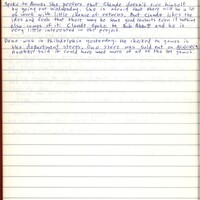 Spoke to Donna. She prefers that Claude doesn't give himself
by going out wednesday. She is afraid that there will be a lot
of work with little chance of returns. But Claude likes the
idea and feels that there may be some good contacts even if nothing
else comes of it. Claude spoke to Bob Abbott and he is
very little interested in the project.
Dave was in Philadelphia yesterday. He checked to games in
the department stores. One store was sold out on
another said it could have used more of all the lot games.